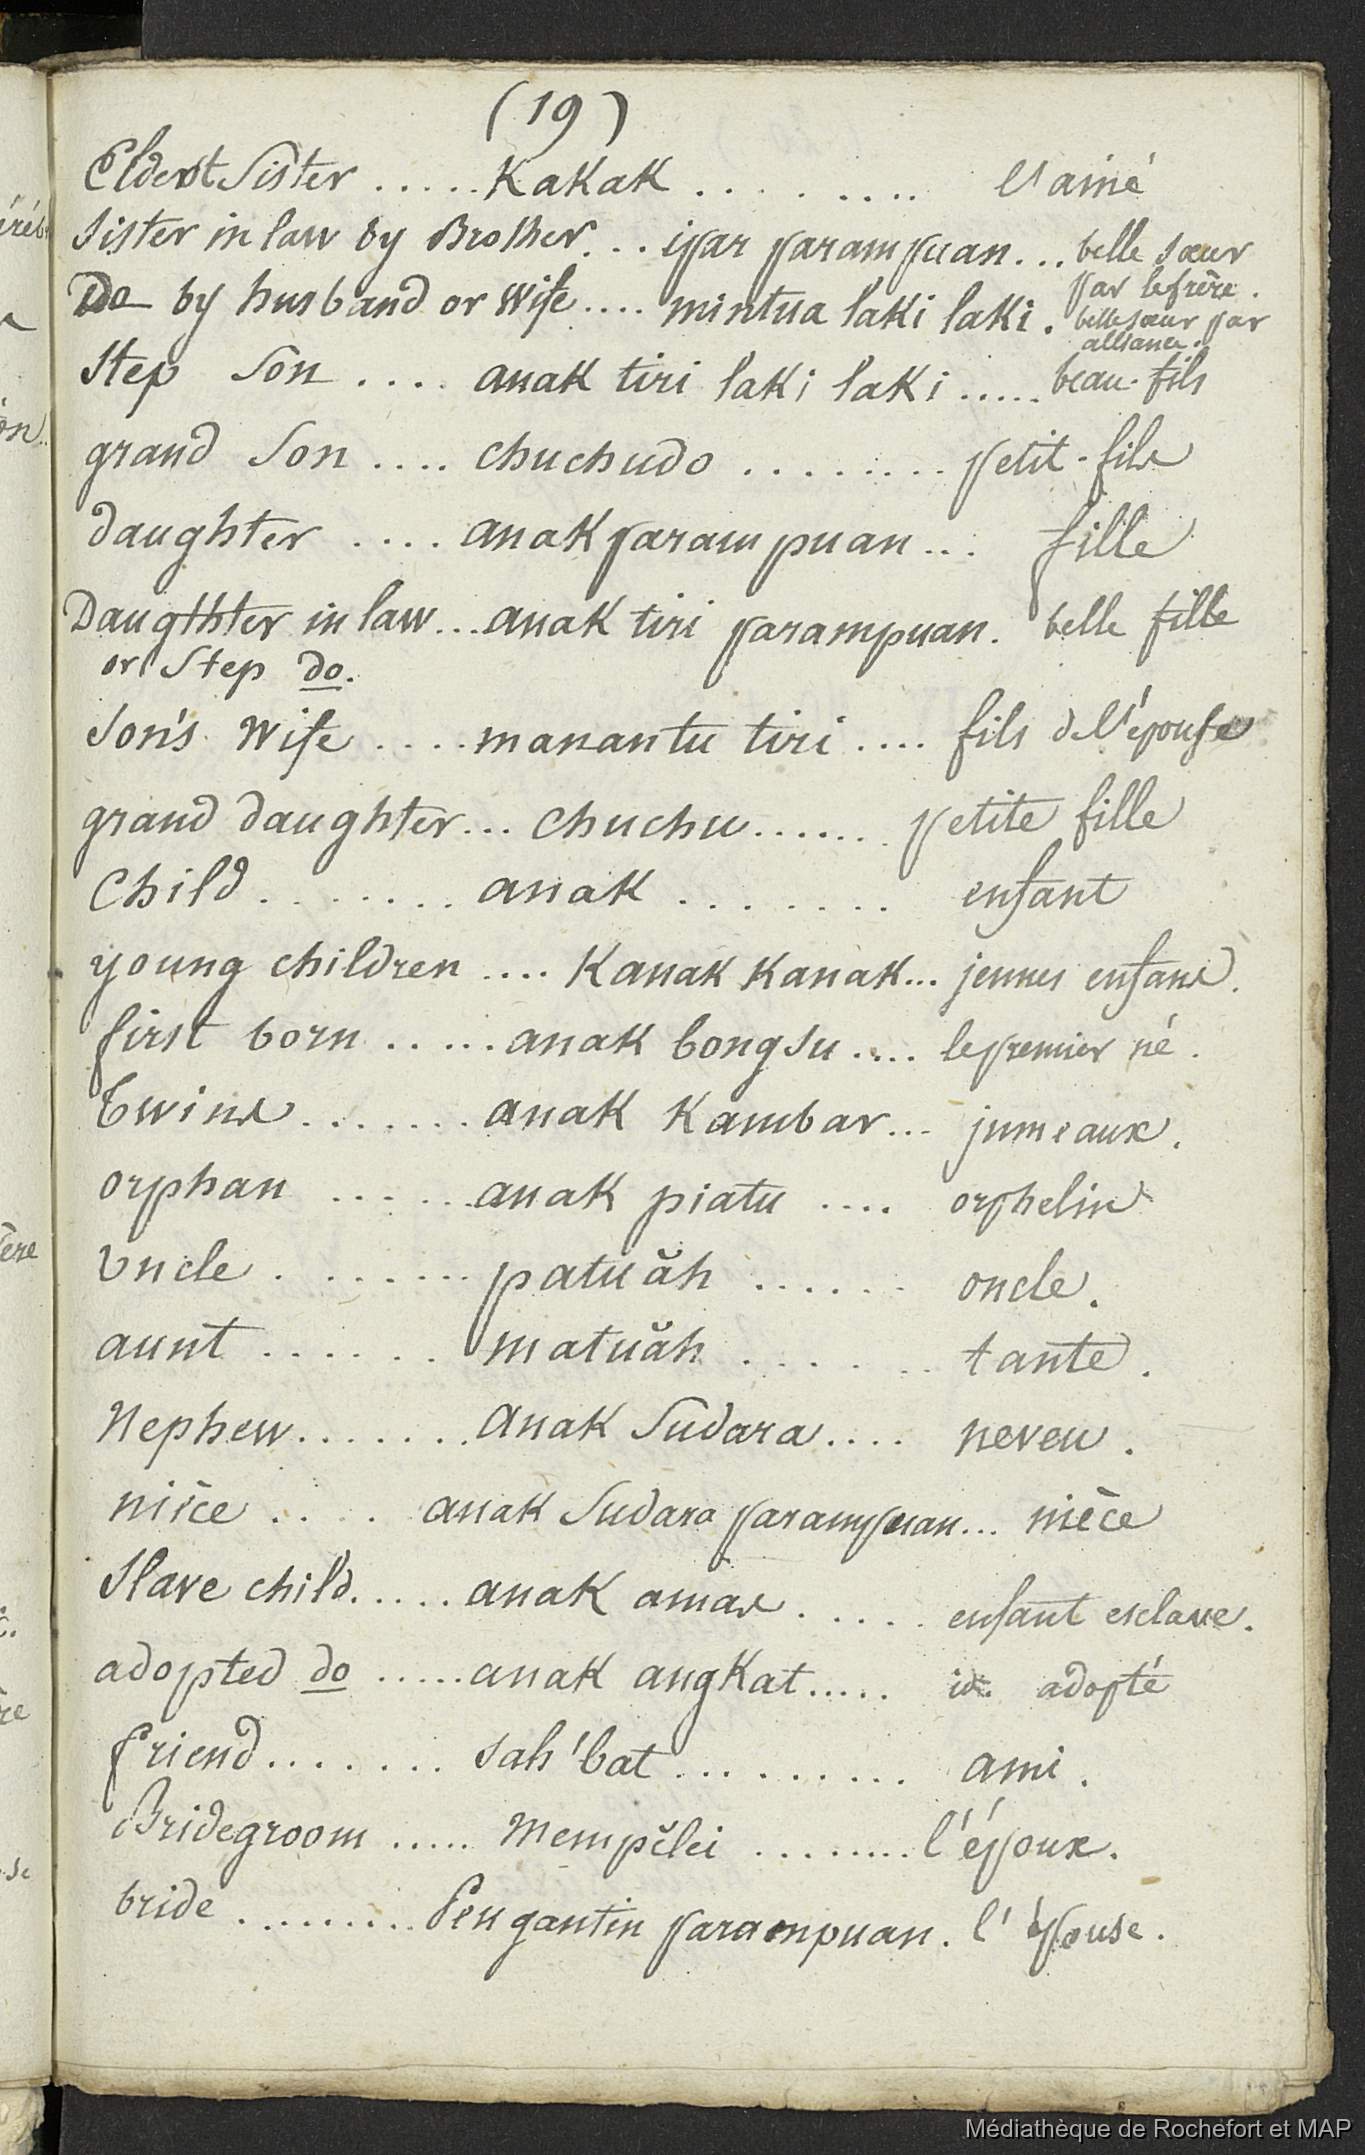 (19)
Elderst Sister ..... Kakak ......... l'ainé
Sister in law by Brother... ipar parampuan... belle sœur
par le frère.
Do by husband or Wife.... mintua laki laki. belle sœur par
alliance.
Step Son .... anak tiri laki laki ..... beau-fils
grand Son .... chuchudo ........ petit-fils
daughter .... anak parampuan... fille
Daugthter in law... anak tiri parampuan. belle fille
or Step do.
Son's Wife ..... manantu tiri .... fils de l'épouse
grand daughter... chuchu....... petite fille
Child ....... anak ....... enfant
young children .... Kanak Kanak... jeunes enfans.
first born ..... anak bongsu .... le premier né.
Twins ....... anak Kambar... jumeaux.
orphan ...... anak piatu .... orphelin
Uncle ....... patuăh ...... oncle.
aunt ...... matuăh ....... tante.
Nephew....... anak Sudara.... neveu.
nièce .... anak Sudara parampuan... nièce
Slave child..... anak amas ..... enfant esclave.
adopted do ..... anak angkat..... id. adopté
friend....... sah'bat ......... ami.
Bridegroom ..... Mempĕlei ........ l'époux.
bride ......... Pengantin parampuan. l'épouse.
Médiathèque de Rochefort et MAP